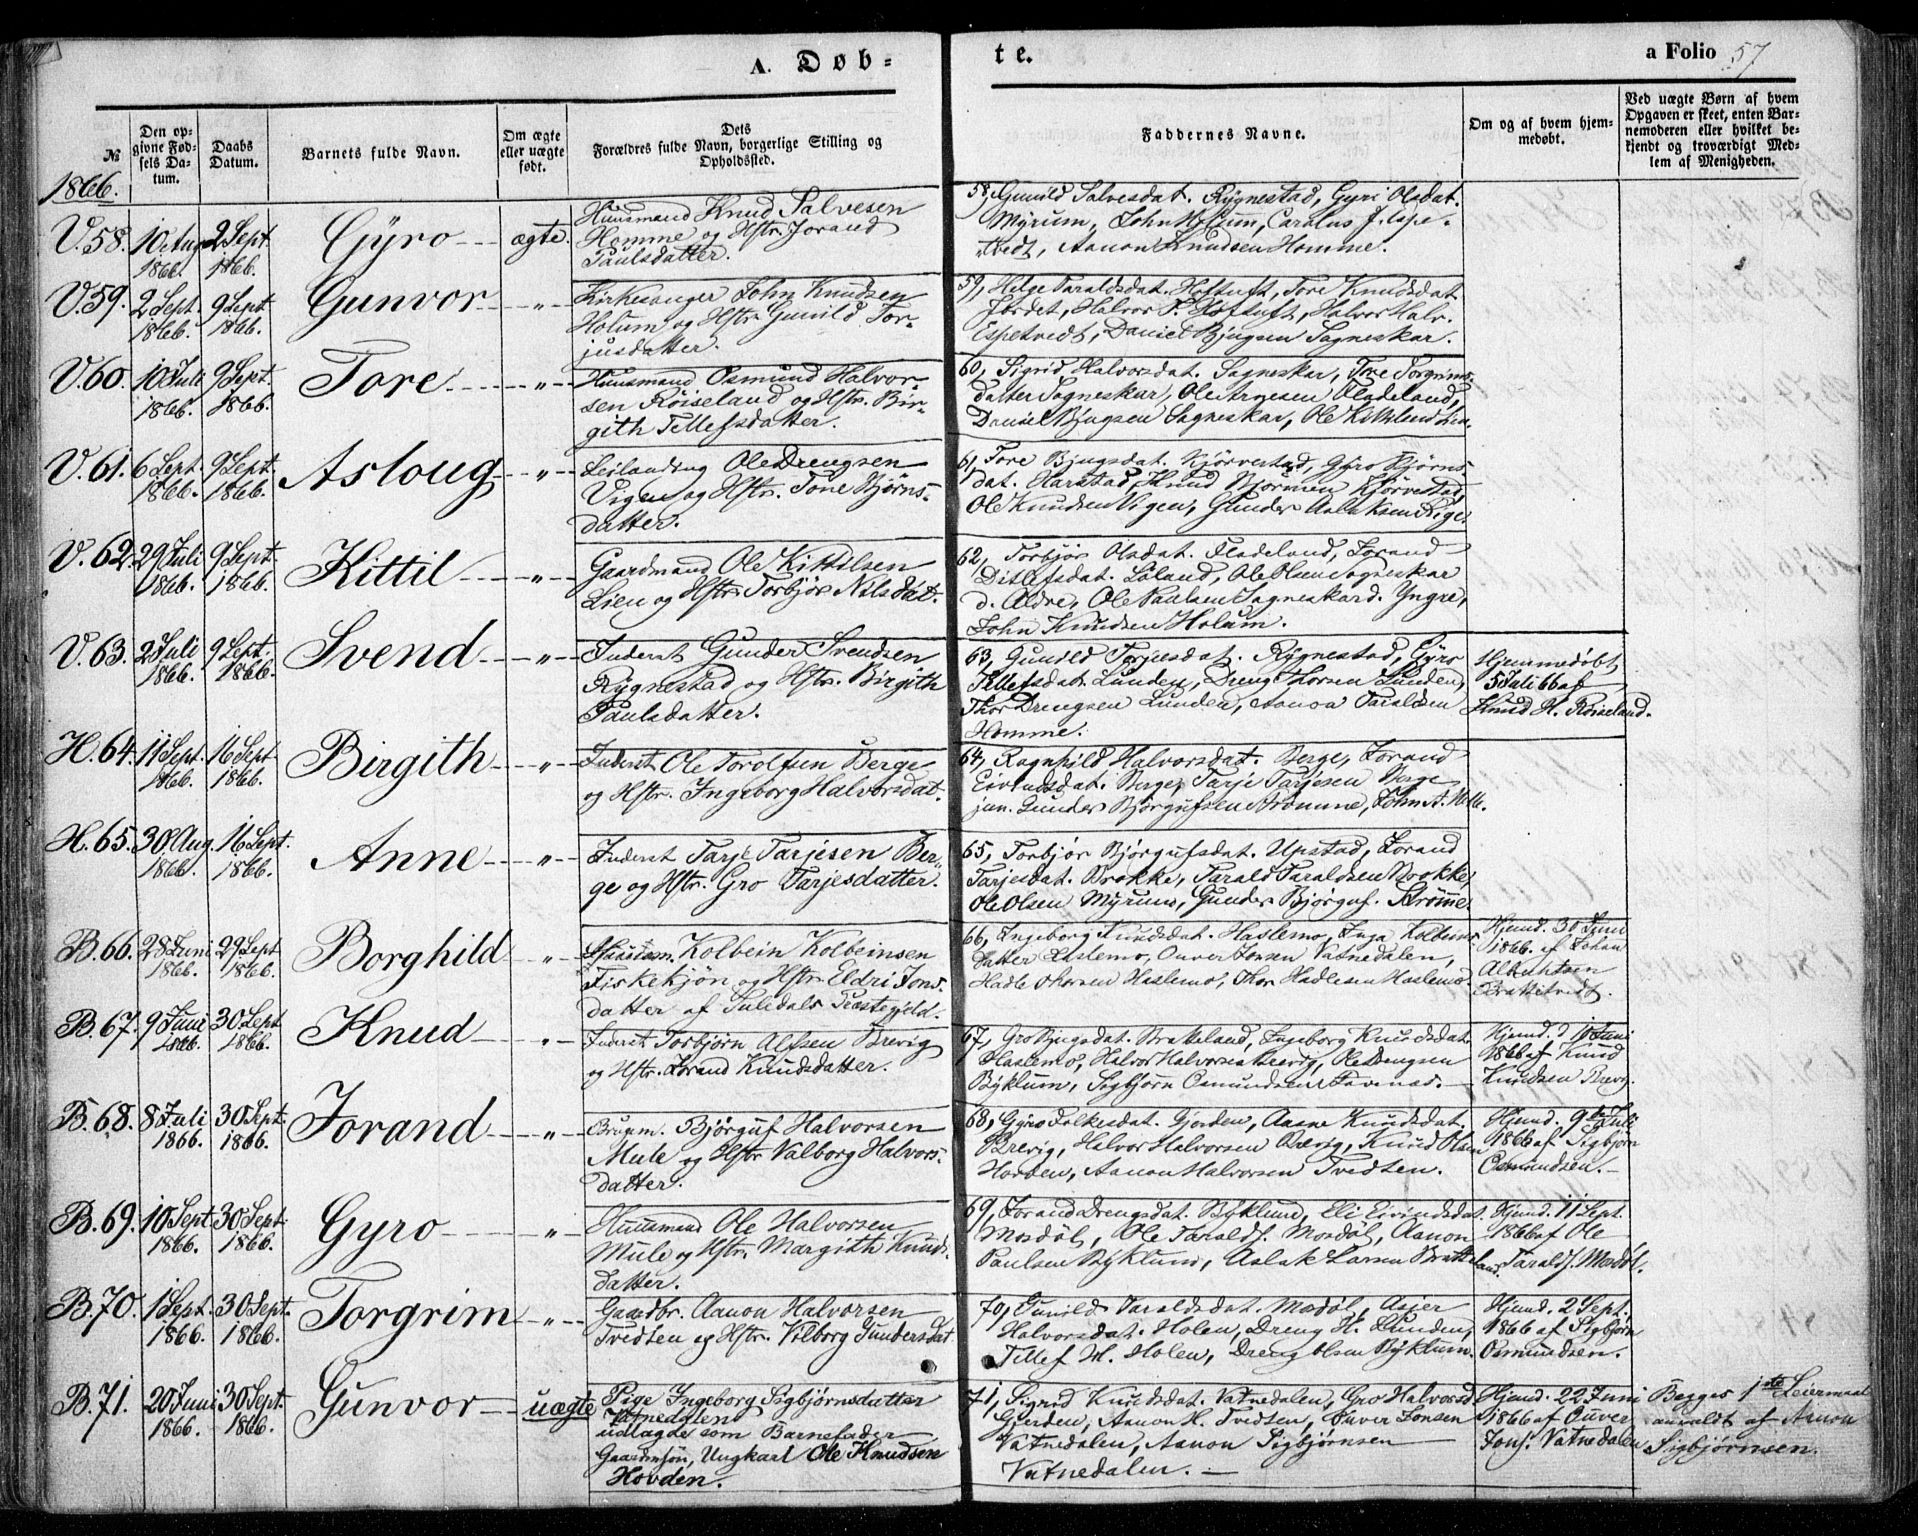 A. Døb-
te.
a Folio 57
№
Den op-
givne Fød-
sels Da-
tum.
Daabs
Datum.
Barnets fulde Navn.
Om ægte
eller uægte
født.
Dets
Forældres fulde Navn, borgerlige Stilling og
Opholdssted.
Faddernes Navne.
Om og af hvem hjem-
medøbt.
Ved uægte Børn af hvem
Opgaven er skeet, enten Bar-
nemoderen eller hvilket be-
kjendt og troværdigt Med-
lem af Menigheden.
1866.
V. 58. 10 Aug 1866. 2 Sept 1866. Gyro ægte.
Huusmand Knud Salvesen
Homme og Hstr. Jorand
Paulsdatter.
58, Gunild Salvesdat. Rygnestad, Gyri Olsdat.
Myrum, John Holum, Carolus J. Espe-
tvedt, Aanon Knudsen Homme.
V. 59. 2 Sept 1866. 9 Sept 1866. Gunvor "
Kirkesanger John Knudsen
Holum og Hstr. Gunild Tor-
jusdatter.
59, Helge Taraldsdat. Hoftuft, Tore Knudsdat
Jordet, Halvor T. Hoftuft, Halvor Halv.
Espetvedt, Daniel Bjugsen Sagneskar.
V. 60. 10 Juli 1866. 9 Sept. 1866. Tore "
Huusmand Osmund Halvor-
sen Røiseland og Hstr. Bir-
gith Tellefsdatter.
60, Sigrid Halvorsdat. Sagneskar, Tore Torgrims-
datter Sagneskar, Ole Arnesen Fladeland,
Daniel Bjugsen Sagneskar, Ole Kittilsen Lien.
V. 61. 6 Sept. 1866. 9 Sept. 1866. Asloug "
Leilænding Ole Drengsen
Vigen og Hstr. Tone Bjørns-
datter.
61, Tore Bjugsdat. Kjørvestad, Gyro Bjørns-
dat. Harstad, Knud Bjørnsen Kjørvestad,
Ole Knudsen Vigen, Gunder Aslaksen Rige.
V. 62. 29 Juli 1866. 9 Sept. 1866. Kittil "
Gaardmand Ole Kittilsen
Lien og Hstr. Torbjør Nilsdat.
62, Torbjør Olsdat. Fladeland, Jorand
Ditlefsdat. Løland, Ole Olsen Sagneskar
d. Aldre, Ole Paulsen Sagneskar d. Yngre,
John Knudsen Holum.
V. 63. 2 Juli 1866. 9 Sept. 1866. Svend "
Inderst Gunder Svendsen
Rygnestad og Hstr. Birgith
Paulsdatter.
63, Gunild Torjesdat. Rygnestad, Gyro
Tellefsdat. Lunden, Dreng Thorsen Lunden,
Thor Drengsen Lunden, Aanon Taraldsen
Homme.
Hjemmedøbt
5 Juli 66 af
Knud H. Røiseland.
H. 64. 11 Sept. 1866. 16 Sept 1866. Birgith "
Inderst Ole Torolfsen Berge
og Hstr. Ingeborg Halvorsdat.
64, Ragnhild Halvorsdat. Berge, Jorand
Eivindsdat. Berge, Tarje Tarjesen Berge
jun. Gunder Bjørgufsen Strømme, John A.
H. 65. 30 Aug. 1866. 16 Sept. 1866. Anne "
Inderst Tarje Tarjesen Ber-
ge og Hstr. Gro Tarjesdatter.
65, Torbjør Bjørgufsdat. Upstad, Jorand
Tarjesdat. Brokke, Tarald Taraldsen Brokke,
Ole Olsen Myrum, Gunder Bjørguf. Strømme
B. 66. 28 Juni 1866. 29 Sept 1866. Borghild "
Huusm. Kolbein Kolbeinsen
Fiskekjøn og Hstr. Eldri Jons-
datter af Suledals Præstegjeld.
66, Ingeborg Knudsdat. Haslemo, Inga Kolbeins-
datter Haslemo, Ouver Jonsen Vatnedalen,
Hadle Thorsen Haslemo, Thor Hadlesen Haslemo.
Hjemd. 30 Juni
1866. af Johan
Albrihtsen
Brattetvedt.
B. 67. 9 Juni 1866. 30 Sept 1866. Knud "
Inderst Torbjørn Alfsen Brevig
og Hstr. Jorand Knudsdatter.
67, Gro Bjugsdat. Brakeland, Ingeborg Knudsdat.
Haslemo, Halvor Halvorsen Brevig, Ole Drengsen
Byklum, Sigbjørn Osmundsen Tavenæs.
Hjemd. d. 10 Juni
1866 af Knud
Knudsen Brevig.
B. 68. 8 Juli 1866. 30 Sept. 1866. Jorand "
Brugm. Bjørguf Halvorsen
Mule og Hstr. Valborg Halvors-
datter.
68, Gyro Folkesdat. Gjorden, Aasne Knudsdat.
Brevig, Halvor Halvorsen Brevig, Knud Olsen
Hovden, Aanon Halvorsen Tvedten.
Hjemd. 9de Juli
1866 af Sigbjørn
Osmundsen.
B. 69. 10 Sept. 1866. 30 Sept. 1866. Gyro "
Huusmand Ole Halvorsen
Mule og Hstr. Margith Knuds-
datter.
69, Jorand Drengsdat. Byklum, Eli Eivindsdat.
Mosdøl, Ole Taralds. Mosdøl, Aanon
Paulsen Byklum, Aslak Larsen Bratteland.
Hjemd. 11 Sept.
1866 af Ole
Taralds. Mosdøl.
B. 70. 1 Sept. 1866. 30 Sept. 1866. Torgrim "
Gaardbr. Aanon Halvorsen
Tvedten og Hstr. Vilborg Gundersdat
70, Gunild Taraldsdat. Mosdøl, Asjer
Halvorsdat. Holen, Dreng H. Lunden,
Tellef H. Holen, Dreng Olsen Byklum.
Hjemd. 2 Sept.
1866 af Sigbjørn
Osmundsen.
B. 71. 20 Juni 1866. 30 Sept. 1866. Gunvor uægte
Pige Ingeborg Sigbjørnsdatter
Vatnedalen
udlagde som Barnefader
Gaardmsøn, Ungkarl Ole Knudsen
Hovden.
71, Sigrid Knudsdat. Vatnedalen, Gro Halvorsd
Gjerden, Aanon H. Tvedten, Ouver Jonsen
Vatnedalen, Aanon Sigbjørnsen
Vatnedalen.
Hjemd. 22 Juni
1866 af Ouver
Jons. Vatnedalen
Begges 1ste Leiermaal
anmeldt af Aanon
Sigbjørnsen.